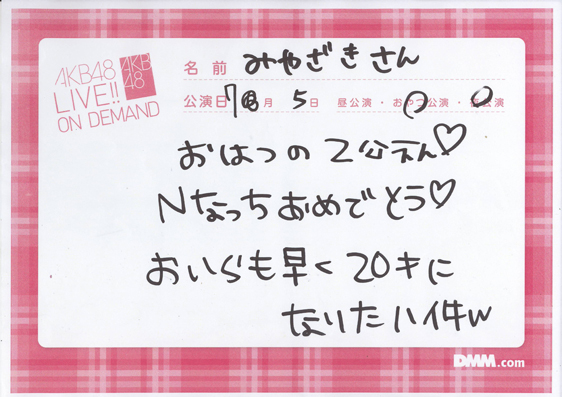 AKB48
LIVE!!
ON DEMAND
AKB
48
名前 みやざきさん
公演日 7月 5日 昼公演・おやつ公演・夜公演
おはつの2公えん♡
Nなっちおめでとう♡
おいらも早く20才に
なりたい件w
DMM.com